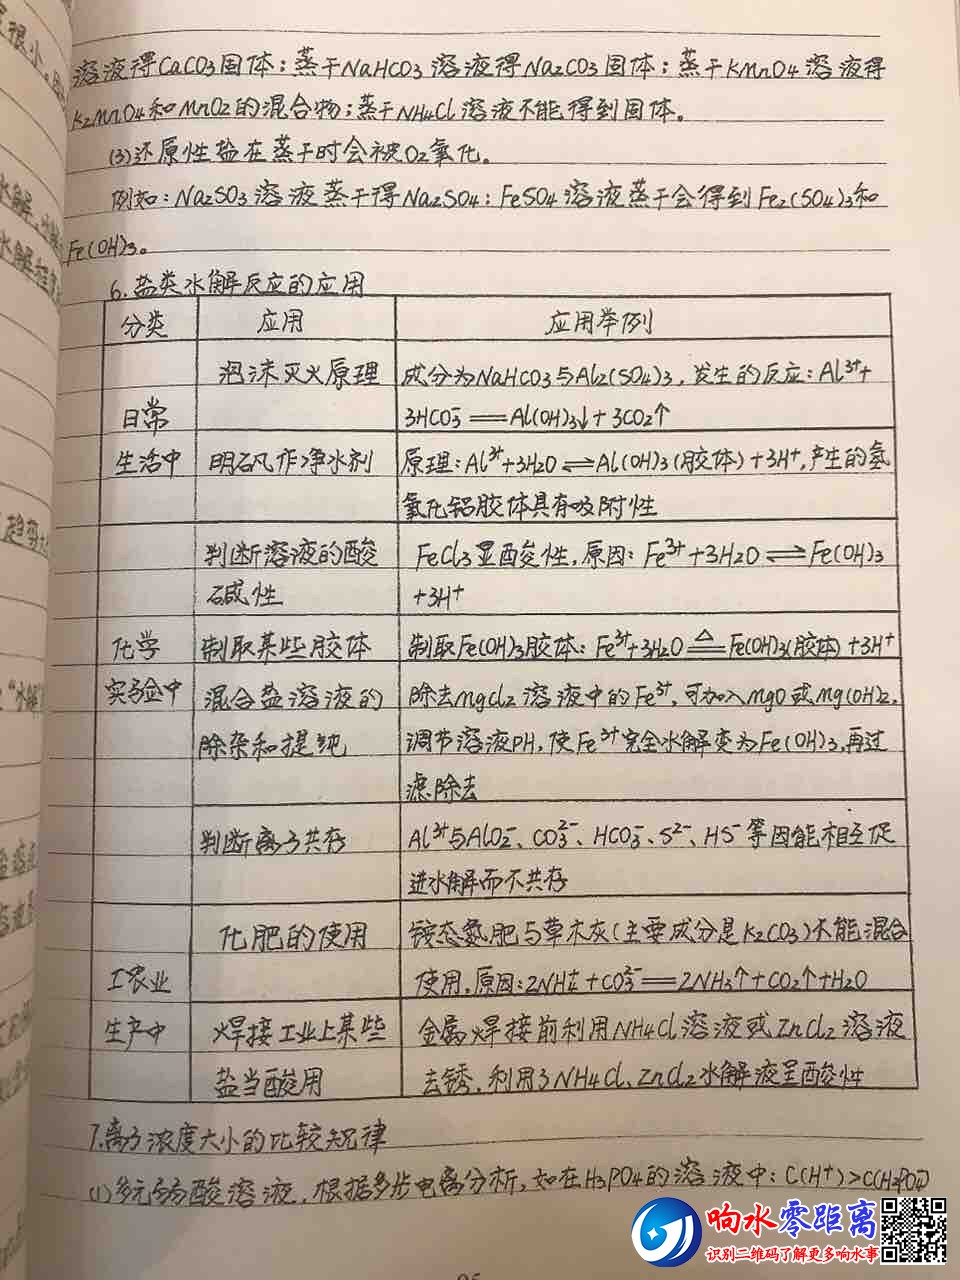 溶液得CaCO3固体；蒸干NaHCO3溶液得Na2CO3固体；蒸干KMnO4溶液得
K2MnO4和MnO2的混合物；蒸干NH4Cl溶液不能得到固体。
(3)还原性盐在蒸干时会被O2氧化。
例如：Na2SO3溶液蒸干得Na2SO4；FeSO4溶液蒸干会得到Fe2(SO4)3和
Fe(OH)3。
6.盐类水解反应的应用
分类 应用 应用举例
泡沫灭火原理 成分为NaHCO3与Al2(SO4)3，发生的反应：Al³⁺+
日常 3HCO3⁻══Al(OH)3↓+3CO2↑
生活中 明矾作净水剂 原理：Al³⁺+3H2O⇌Al(OH)3(胶体)+3H⁺，产生的氢
氧化铝胶体具有吸附性
判断溶液的酸 FeCl3显酸性，原因：Fe³⁺+3H2O⇌Fe(OH)3
碱性 +3H⁺
化学 制取某些胶体 制取Fe(OH)3胶体：Fe³⁺+3H2O══△Fe(OH)3(胶体)+3H⁺
实验中 混合盐溶液的 除去MgCl2溶液中的Fe³⁺，可加入MgO或Mg(OH)2，
除杂和提纯 调节溶液PH，使Fe³⁺完全水解变为Fe(OH)3，再过
滤除去
判断离子共存 Al³⁺与AlO2⁻、CO3²⁻、HCO3⁻、S²⁻、HS⁻等因能相互促
进水解而不共存
化肥的使用 铵态氮肥与草木灰(主要成分是K2CO3)不能混合
工农业 使用，原因：2NH4⁺+CO3²⁻══2NH3↑+CO2↑+H2O
生产中 焊接工业上某些 金属焊接前利用NH4Cl溶液或ZnCl2溶液
盐当酸用 去锈，利用了NH4Cl、ZnCl2水解液呈酸性
7.离子浓度大小的比较规律
(1)多元弱酸溶液，根据多步电离分析，如在H3PO4的溶液中：C(H⁺)>C(H2PO4⁻)
响水零距离
识别二维码了解更多响水事